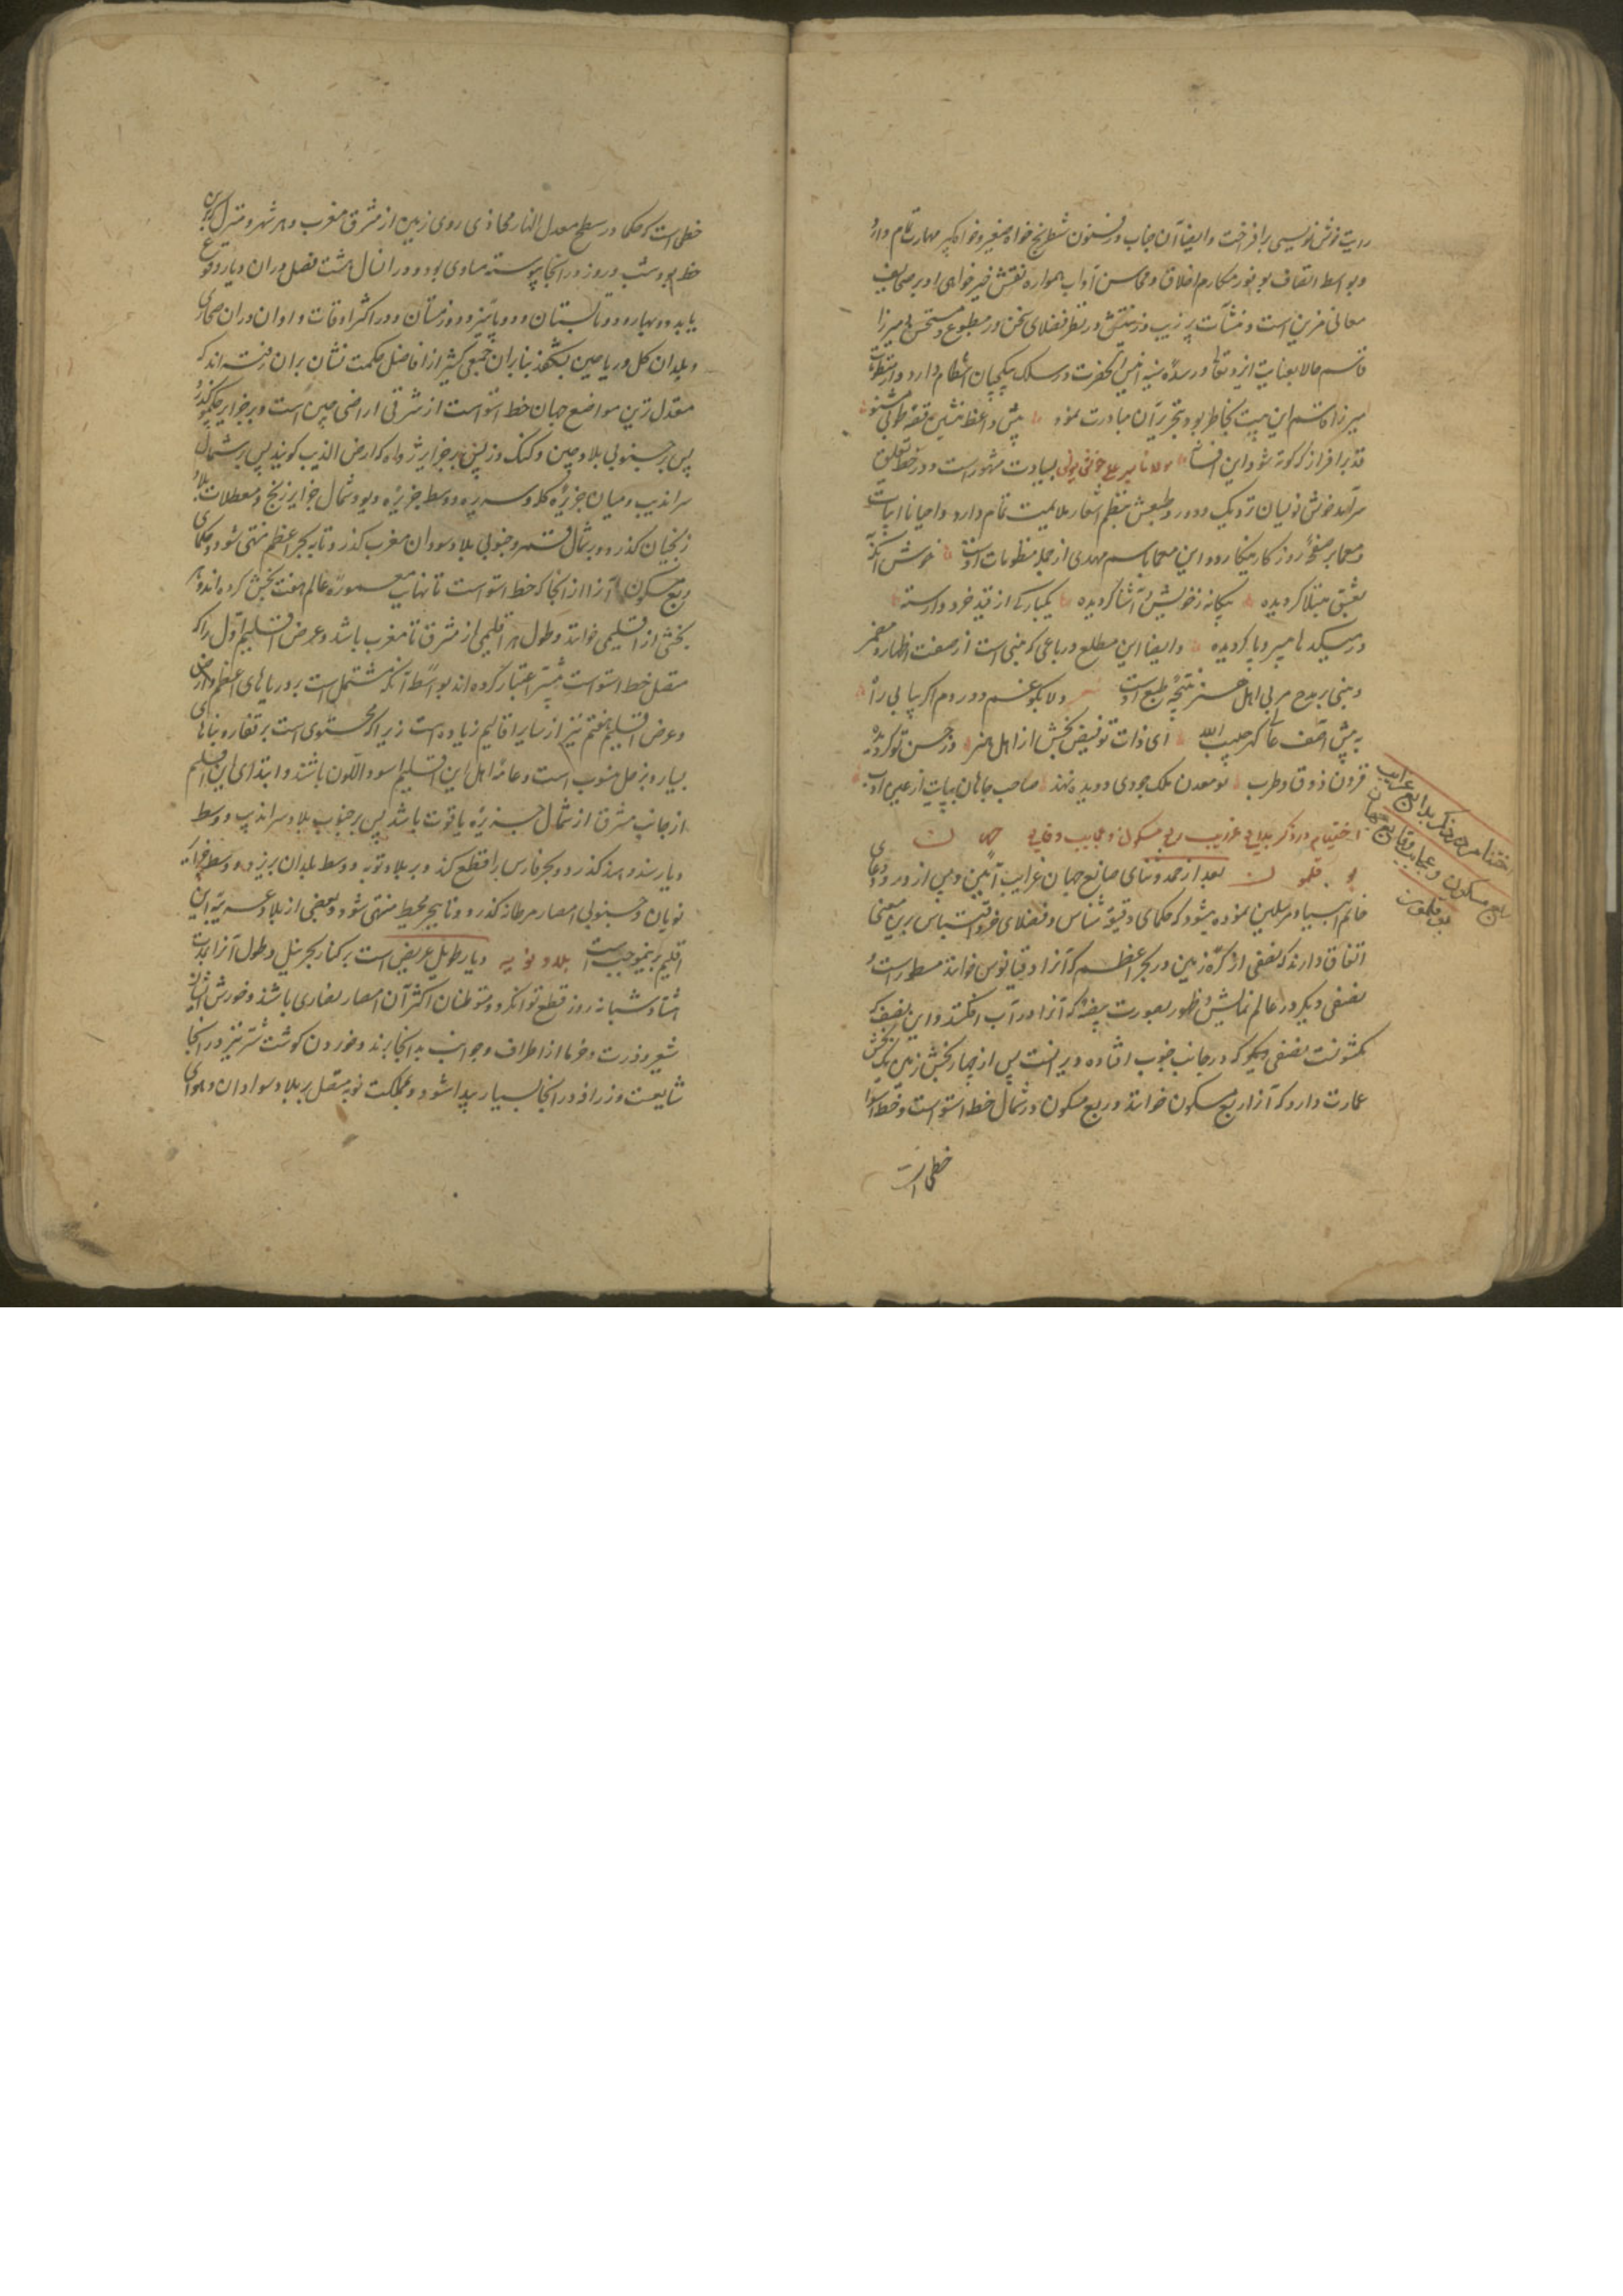 رایت خوش نویسی برافراخت و ایضا آن جناب در فنون شطرنج خواه صغیر و خواه کبیر مهارت تمام دارد
و بواسطه اتصاف بوفور مکارم اخلاق و محاسن آداب همواره نقش خیرخواهی او بر صحایف
معانی مزین است و منشآت پر زیب و زینتش در نظر فضلای سخن ور مطبوع و مستحسن میرزا
قاسم حالا بعنایت ایزد تعالی در سده سنیه این حضرت در سلک انتظام دارد و از منظومات
میرزا قاسم این بیت بخاطر بود بتحریر آن مبادرت نمود پیش واعظ منشین قصه طوبی مشنو
قد برافراز که کوته شود این افسانه مولانا میر علی بسیادت مشهور است و در خط تعلیق
سرآمد خوش نویسان نزدیک و دور و طبعش بنظم اشعار ملایمت تمام دارد و احیانا ابیات
و معما بر صفحه روزگار مینگارد و این معما باسم مهدی از جمله منظومات اوست خوش آنکه
بعشق مبتلا گردیده بیگانه ز خویش و آشنا گردیده یکبارگی از قید خرد وارسته
در میکدها بی سر و پا گردیده و ایضا این مطلع و رباعی که مبنی است از صفت اظهار و مضمر
و مبنی بر مدح مربی اهل هنر نتیجه طبع اوست دلا بکوی غم و درد مرا اگر بیابی
به پیش آصف حبیب الله ای ذات تو فیض بخش ارباب هنر
قرون ذوق و طرب تو معدن ملک جودی و دیده نهند صاحب جاهان بپایت از عین ادب
اختتام در ذکر بدایع و غرایب ربع مسکون و عجایب و وقایع جهان
بوقلمون بعد از حمد و ثنای صانع جهان غرایب آیین و پس از درود و دعای
خاتم انبیا و مرسلین نموده میشود که حکمای دقیقه شناس و فضلای فراست اقتباس برین معنی
اتفاق دارند که نصفی از کره زمین در بحر اعظم که آنرا اوقیانوس خوانند مسطور است و
نصفی دیگر در عالم نمایش و ظهور بصورت بیضه که آنرا در آب افکنند و این نصف که
مکشوفست نصفی دیگر که در جانب جنوب افتاده ویرانست پس از چهار بخش زمین یک بخش
عمارت دارد که آنرا ربع مسکون خوانند و ربع مسکون در شمال خط استواست و خط استوا
خطی است
اختتام در ذکر بدایع و غرایب
ربع مسکون و عجایب و وقایع جهان
بوقلمون
خطی است که حکما در سطح معدل النهار محاذی روی زمین از مشرق تا مغرب و هر شهر و منزل که بر آن
خط بود شب و روز در آنجا پیوسته مساوی بود و در آن سال هشت فصل در آن دیار وقوع
یابد دو بهار و دو تابستان و دو پائیز و دو زمستان و در اکثر اوقات و اوان در آن صحاری
و بلدان گل و ریاحین بشکفد بنا بر آن جمعی کثیر از افاضل حکمت نشان بر آن رفته‌اند که
معتدل ترین مواضع جهان خط استواست از شرقی اراضی چین است و بر جزایر گذرد
پس بر جنوبی بلاد چین و کنک دز پس بر جزایر زاوه که ارض الذهب گویند پس بر شمال
سراندیب و میان جزیره کله و سریره و وسط جزیره دیو و شمال جزایر زنج و معظمات بلاد
زنجیان گذرد و بر شمال جبل قمر و جنوبی بلاد سودان مغرب گذرد تا به بحر اعظم منتهی شود و حکما
ربع مسکون آنرا از آنجا که خط استواست تا نهایت معموره عالم هفت بخش کرده‌اند و هر
بخشی را اقلیمی خوانند و طول هر اقلیمی از مشرق تا مغرب باشد و عرض اقلیم اول را که
متصل خط استواست بیشتر اعتبار کرده‌اند بواسطه آنکه مشتمل است بر دریاهای اعظم و ارض
و عرض اقلیم هفتم نیز از سایر اقالیم زیاده است زیرا که محتوی است بر قفار و بنیانهای
بسیار و بزحل منسوب است و عامه اهل این اقلیم اسود اللون باشند و ابتدای این اقلیم
از جانب مشرق از شمال جزیره یاقوت باشد پس بر جنوب بلاد سراندیب و وسط
دیار سند و هند گذرد و بحر فارس را قطع کند و بر بلاد نوبه و وسط بلدان بربر و وسط
نوبان و جنوبی امصار گذرد و تا ببحر محیط منتهی شود و بعضی از بلاد غربیه این
اقلیم برینموجب است بلاد نوبیه دیار طویل عریض است بر کنار بحر نیل و طول آن بلاد را
هشتاد شبانه روز قطع توان کرد و متوطنان اکثر آن امصار نصاری باشند و خورش ایشان
شعیر و ذرت و خرما از اطراف و جوانب به آنجا برند و خوردن گوشت شتر نیز در آنجا
شایعست و زرافه در آنجا بسیار پیدا شود و مملکت نوبه متصل بر بلاد سوادان و هوای